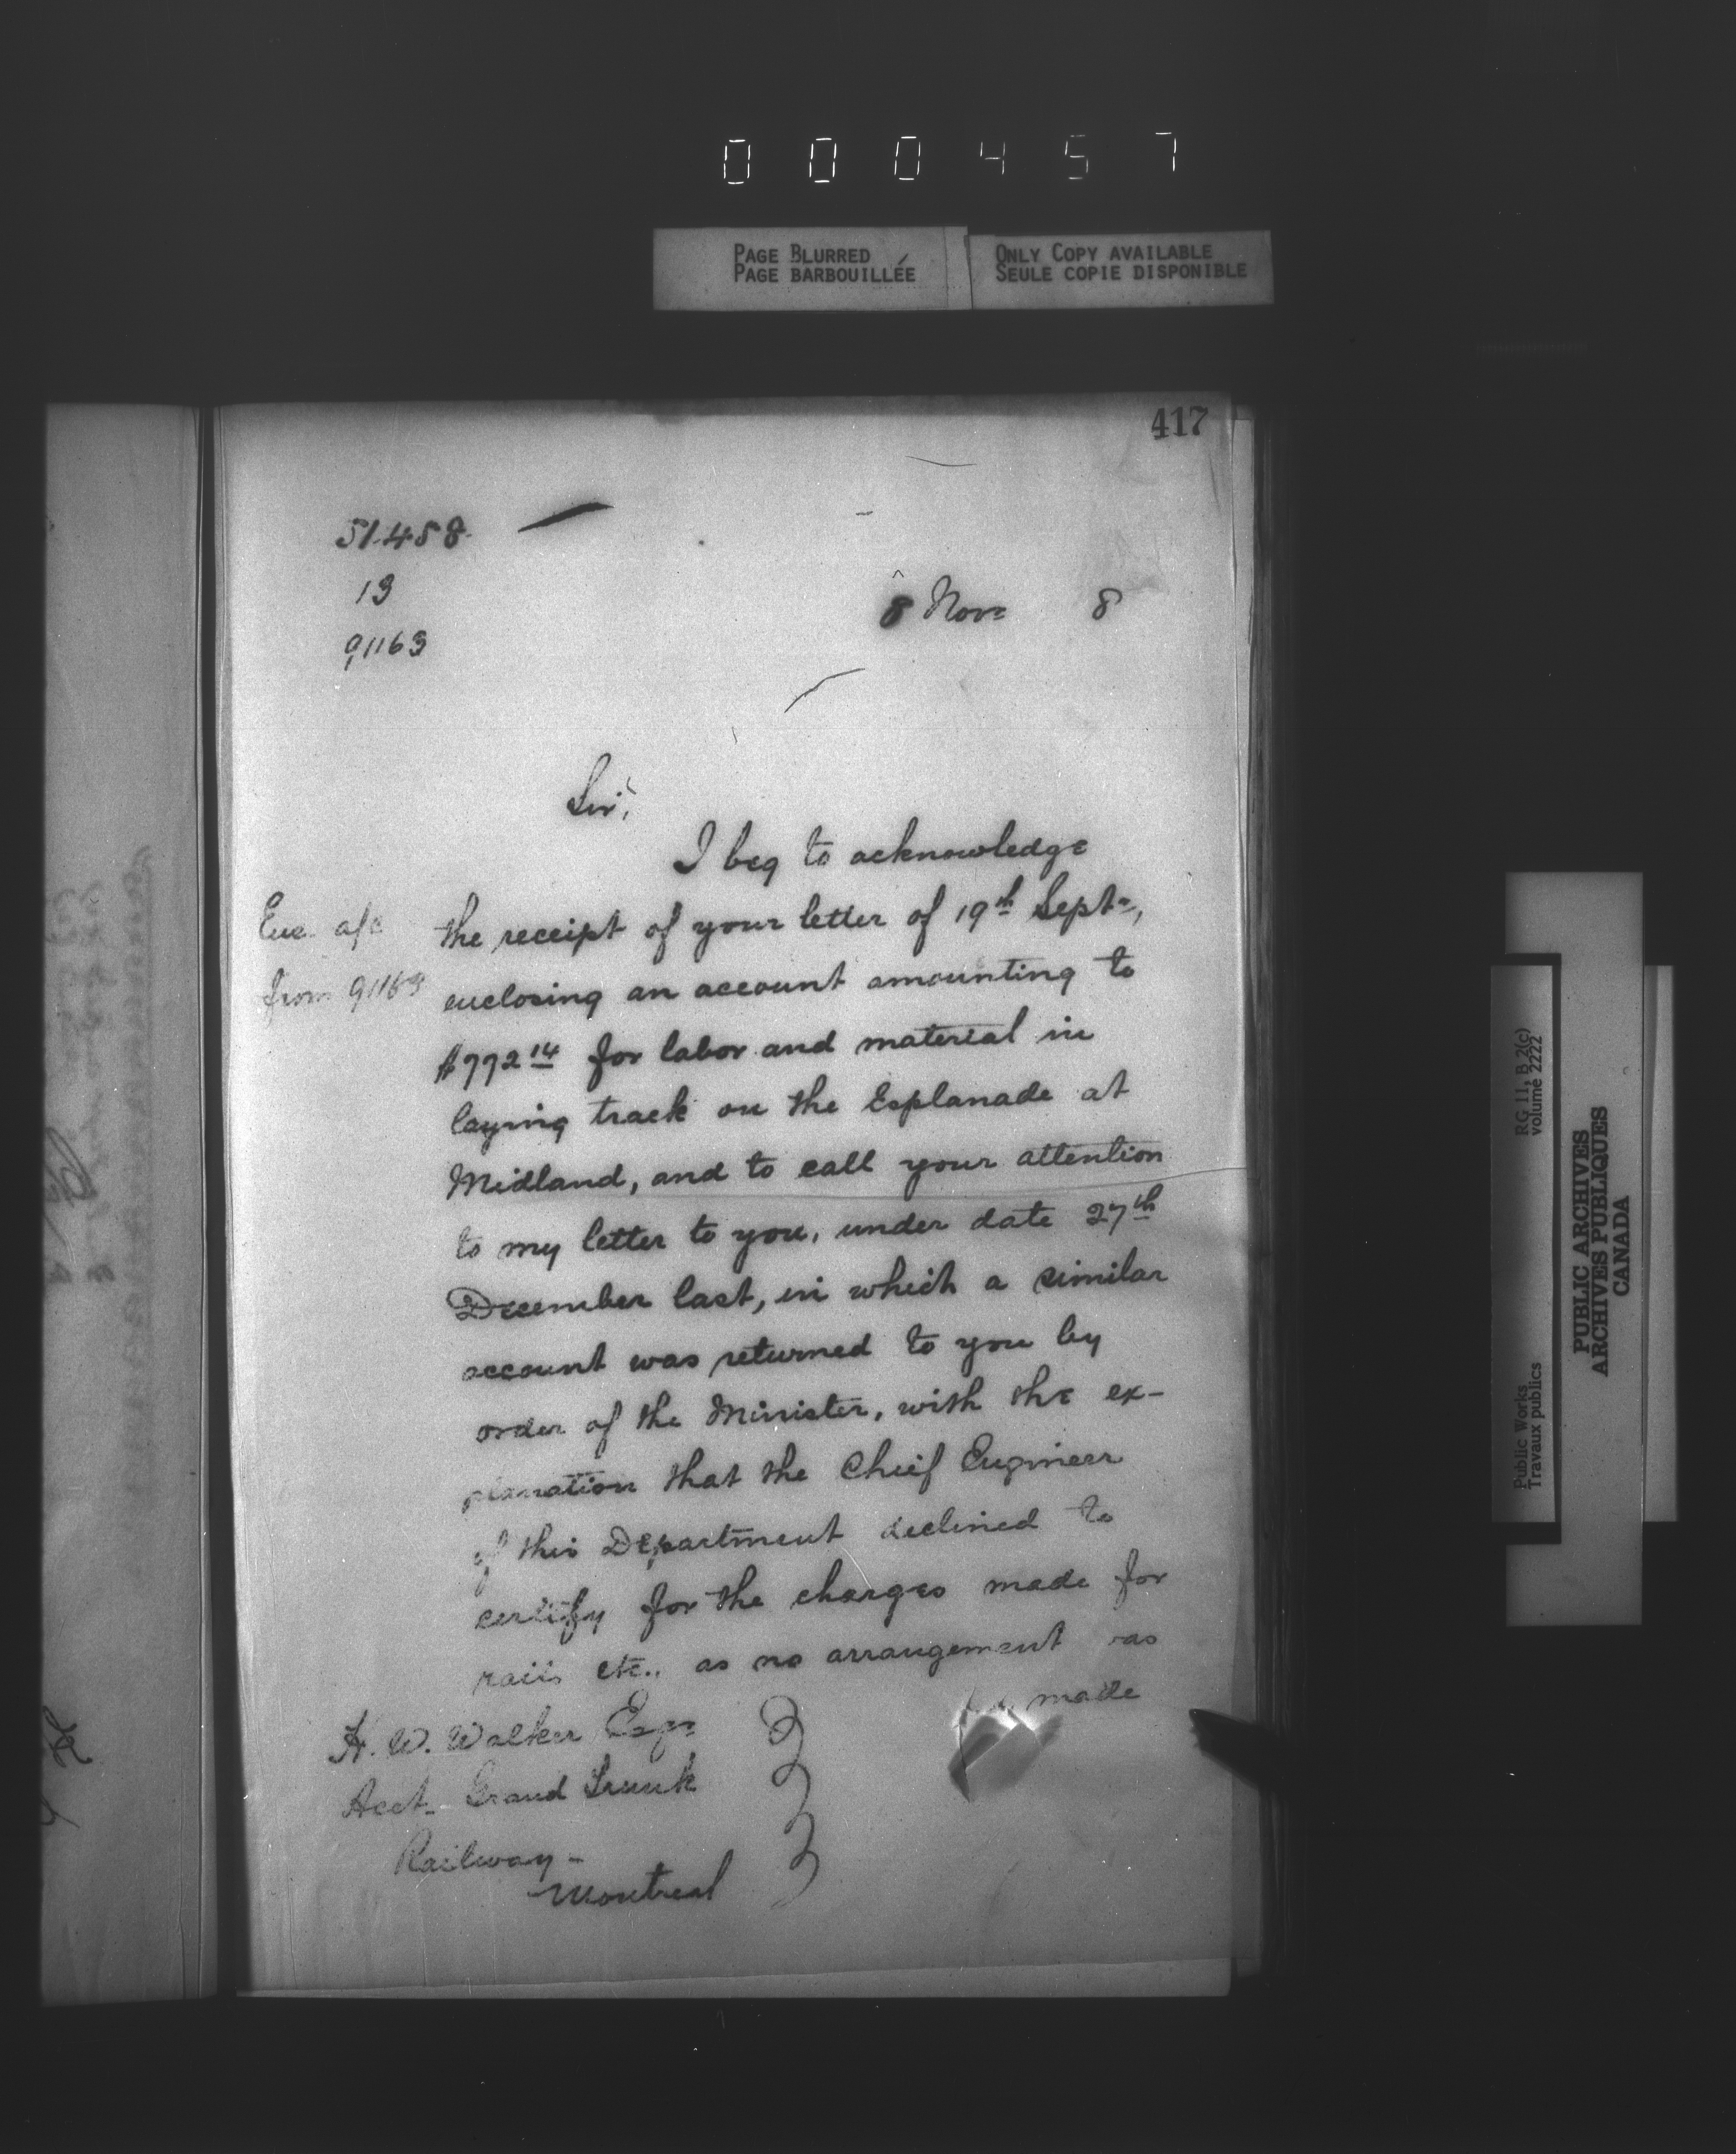 000457
PAGE BLURRED
PAGE BARBOUILLÉE
ONLY COPY AVAILABLE
SEULE COPIE DISPONIBLE
417
51458
13
91163
8 Nov 8
Sir,
I beg to acknowledge
Enc. a/c
the receipt of your letter of 19th Sept.,
from 91163
enclosing an account amounting to
$772 14 for labor and material in
laying track on the Esplanade at
Midland, and to call your attention
to my letter to you, under date 27th
December last, in which a similar
account was returned to you by
order of the Minister, with the ex-
planation that the Chief Engineer
of this Department declined to
certify for the charges made for
rails etc., as no arrangement was
made
H. W. Walker Esqr
Acct. Grand Trunk
Railway -
Montreal
RG 11, B 2(c)
volume 2222
Public Works
Travaux publics
PUBLIC ARCHIVES
ARCHIVES PUBLIQUES
CANADA